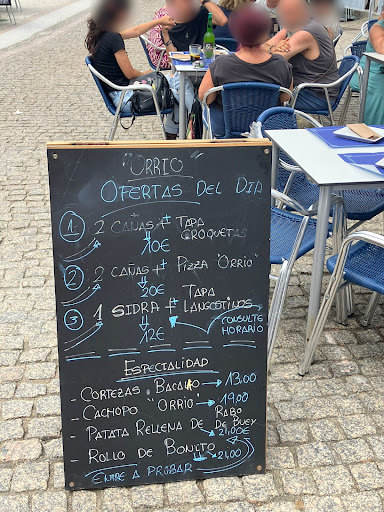 ORRIO
OFERTAS DEL DIA
1. 2 CAÑAS + TAPA
CROQUETAS
10€
2 2 CAÑAS + PIZZA "ORRIO"
20€
3 1 SIDRA + TAPA
LANGOSTINOS
12€
CONSULTE
HORARIO
ESPECIALIDAD
- CORTEZAS BACALAO → 13,00
- CACHOPO "ORRIO → 19,00
- PATATA RELLENA DE RABO
DE BUEY
→ 21,00€
- ROLLO DE BONITO
→ 21,00
ENTRE A PROBAR